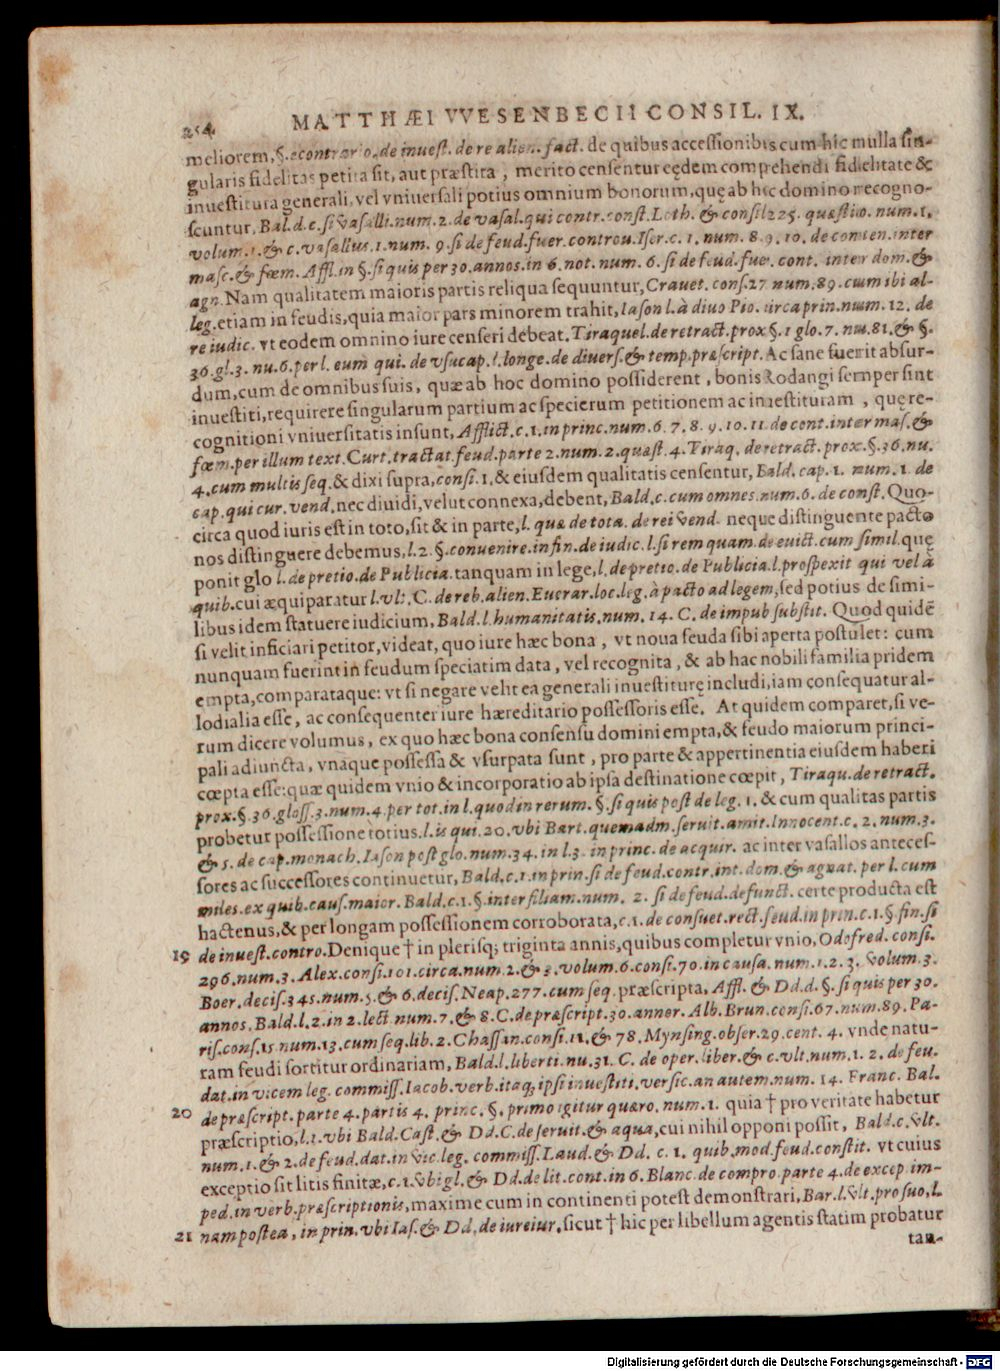 254 MATTHÆI VVESENBECII CONSIL. IX.
meliorem, §. econtrario. de inuest. de re alien. fact. de quibus accessionibus cum hic nulla sin-
gularis fidelitas petita sit, aut præstita, merito censentur eędem comprehendi fidelitate &
inuestitura generali, vel vniuersali potius omnium bonorum, quę ab hic domino recogno-
scuntur, Bal. d. c. si vasalli. num. 2. de vasal. qui contr. const. Loth. & consil 225. quæstio. num. 1.
volum. 1. & c. vasallus. 1. num. 9. si de feud. fuer. controu. Iser. c. 1. num. 8. 9. 10. de conten. inter
masc. & fœm. Affl. in §. si quis per 30. annos. in 6. not. num. 6. si de feud. fue. cont. inter dom. &
agn. Nam qualitatem maioris partis reliqua sequuntur, Crauet. cons. 27 num. 89. cum ibi al-
leg. etiam in feudis, quia maior pars minorem trahit, Iason l. à diuo Pio. circa prin. num. 12. de
re iudic. vt eodem omnino iure censeri debeat. Tiraquel. de retract. prox §. 1 glo. 7. nu. 81. & §.
36. gl. 3. nu. 6. per l. eum qui. de vsucap. l. longe. de diuers. & temp. præscript. Ac sane fuerit absur-
dum, cum de omnibus suis, quæ ab hoc domino possiderent, bonis Rodangi semper sint
inuestiti, requirere singularum partium ac specierum petitionem ac inuestituram, quę re-
cognitioni vniuersitatis insunt, Afflict. c. 1. in princ. num. 6. 7. 8. 9. 10. 11. de cont. inter mas. &
fœm. per illum text. Curt. tractat. feud. parte 2. num. 2. quæst. 4. Tiraq. de retract. prox. §. 36. nu.
4. cum multis seq. & dixi supra, consi. 1. & eiusdem qualitatis censentur, Bald. cap. 1. num. 1. de
cap. qui cur. vend. nec diuidi, velut connexa, debent, Bald. c. cum omnes. num. 6. de const. Quo-
circa quod iuris est in toto, sit & in parte, l. quæ de tota. de rei vend. neque distinguente pacto
nos distinguere debemus, l. 2. §. conuenire. in fin. de iudic. l. si rem quam. de euict. cum simil. quę
ponit glo l. de pretio. de Publicia. tanquam in lege, l. de pretio. de Publicia. l. prospexit qui vel à
quib. cui æquiparatur l. vlt. C. de reb. alien. Euerar. loc. leg. à pacto ad legem, sed potius de simi-
libus idem statuere iudicium, Bald. l. humanitatis. num. 14. C. de impub substit. Quod quidē
si velit inficiari petitor, videat, quo iure hæc bona, vt noua feuda sibi aperta postulet: cum
nunquam fuerint in feudum speciatim data, vel recognita, & ab hac nobili familia pridem
empta, comparataque: vt si negare velit ea generali inuestiturę includi, iam consequatur al-
lodialia esse, ac consequenter iure hæreditario possessoris esse. At quidem comparet, si ve-
rum dicere volumus, ex quo hæc bona consensu domini empta, & feudo maiorum princi-
pali adiuncta, vnàque possessa & vsurpata sunt, pro parte & appertinentia eiusdem haberi
cœpta esse: quæ quidem vnio & incorporatio ab ipsa destinatione cœpit, Tiraqu. de retract.
prox. §. 36. gloss. 3. num. 4. per tot. in l. quod in rerum. §. si quis post de leg. 1. & cum qualitas partis
probetur possessione totius. l. is qui. 20. vbi Bart. quemadm. seruit. amit. Innocent. c. 2. num. 3.
& 5. de cap. monach. Iason post glo. num. 34. in l. 3. in princ. de acquir. ac inter vasallos anteces-
sores ac successores continuetur, Bald. c. 1. in prin. si de feud. contr. int. dom. & agnat. per l. cum
miles. ex quib. caus. maior. Bald. c. 1. §. inter filiam. num. 2. si de feud. defunct. certe producta est
hactenus, & per longam possessionem corroborata, c. 1. de consuet. rect. feud. in prin. c. 1. §. fin. si
19 de inuest. contro. Denique † in plerisq; triginta annis, quibus completur vnio, Odofred. consi.
296. num. 3. Alex. consi. 101. circa. num. 2. & 3. volum. 6. consi. 70. in causa. num. 1. 2. 3. volum. 3.
Boer. decis. 345. num. 5. & 6. decis. Neap. 277. cum seq. præscripta, Affl. & Dd. d. §. si quis per 30.
annos. Bald. l. 2. in 2. lect num. 7. & 8. C. de præscript. 30. annor. Alb. Brun. consi. 67. num. 89. Pa-
ris. cons. 15 num. 13. cum seq. lib. 2. Chassan. consi. 11. & 78. Mynsing. obser. 29. cent. 4. vnde natu-
ram feudi sortitur ordinariam, Bald. l. liberti. nu. 31. C. de oper. liber. & c. vlt. num. 1. 2. de feu.
dat. in vicem leg. commiss. Iacob. verb. itaq; ipsi inuestiti. versic. an autem. num. 14. Franc. Bal.
20 de præscript. parte 4. partis 4. princ. §. primo igitur quæro. num. 1. quia † pro veritate habetur
præscriptio, l. 1. vbi Bald. Cast. & Dd. C. de seruit. & aqua, cui nihil opponi possit, Bald. c. vlt.
num. 1. & 2. de feud. dat. in vic. leg. commiss. Laud. & Dd. c. 1. quib. mod. feud. constit. vt cuius
exceptio sit litis finitæ, c. 1. vbi gl. & Dd. de lit. cont. in 6. Blanc. de compro. parte 4. de excep. im-
ped. in verb. præscriptionis, maxime cum in continenti potest demonstrari, Bar. l. vlt. pro suo, l.
21 nam postea, in prin. vbi Ias. & Dd. de iureiur. sicut † hic per libellum agentis statim probatur
tan-
Digitalisierung gefördert durch die Deutsche Forschungsgemeinschaft - DFG